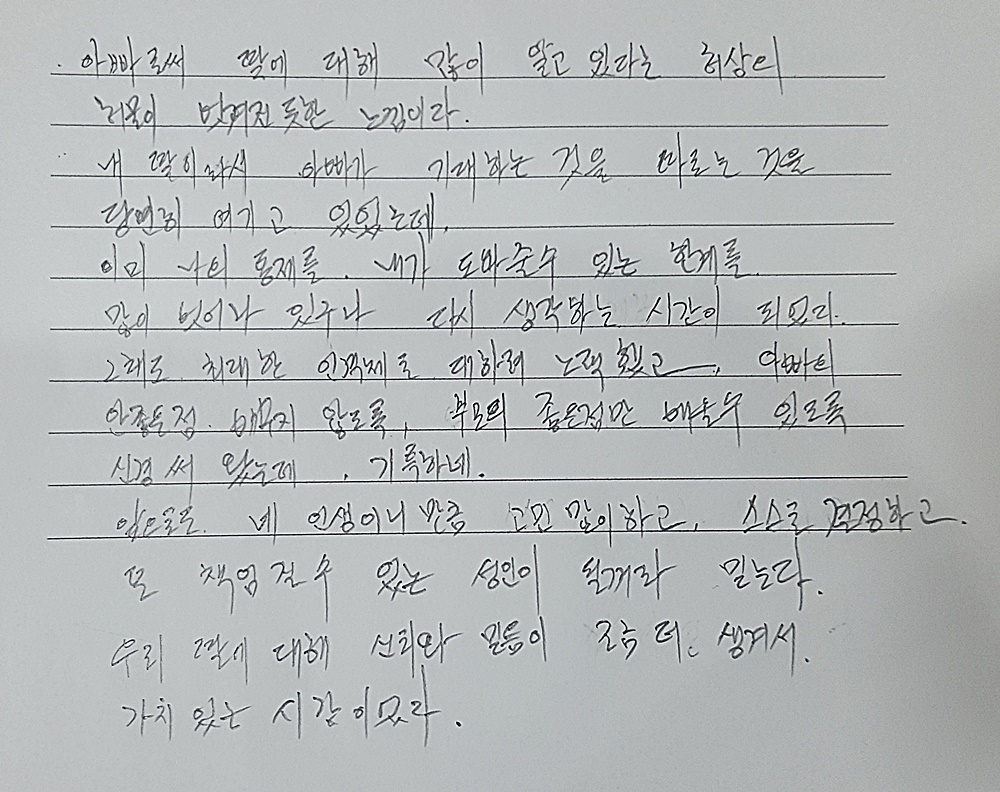 . 아빠로써 딸에 대해 많이 알고 있다는 허상의
허물이 벗겨진 듯한 느낌이라.
. 내 딸이라서 아빠가 기대하는 것을 따르는 것을
당연히 여기고 있었는데,
이미 나의 통제를. 내가 도와줄수 있는 한계를
많이 벗어나 있구나 다시 생각하는 시간이 되었다.
그래도 최대한 인격체로 대하려 노력했고, 아빠의
안좋은점. 배우지 않도록, 부모의 좋은점만 배울수 있도록
신경써 왔는데. 기특하네.
앞으로도 네 인생이니 만큼 고민 많이하고, 스스로 결정하고.
또 책임질수 있는 성인이 될거라 믿는다.
우리 딸에 대해 신뢰와 믿음이 조금 더 생겨서.
가치 있는 시간이었다.